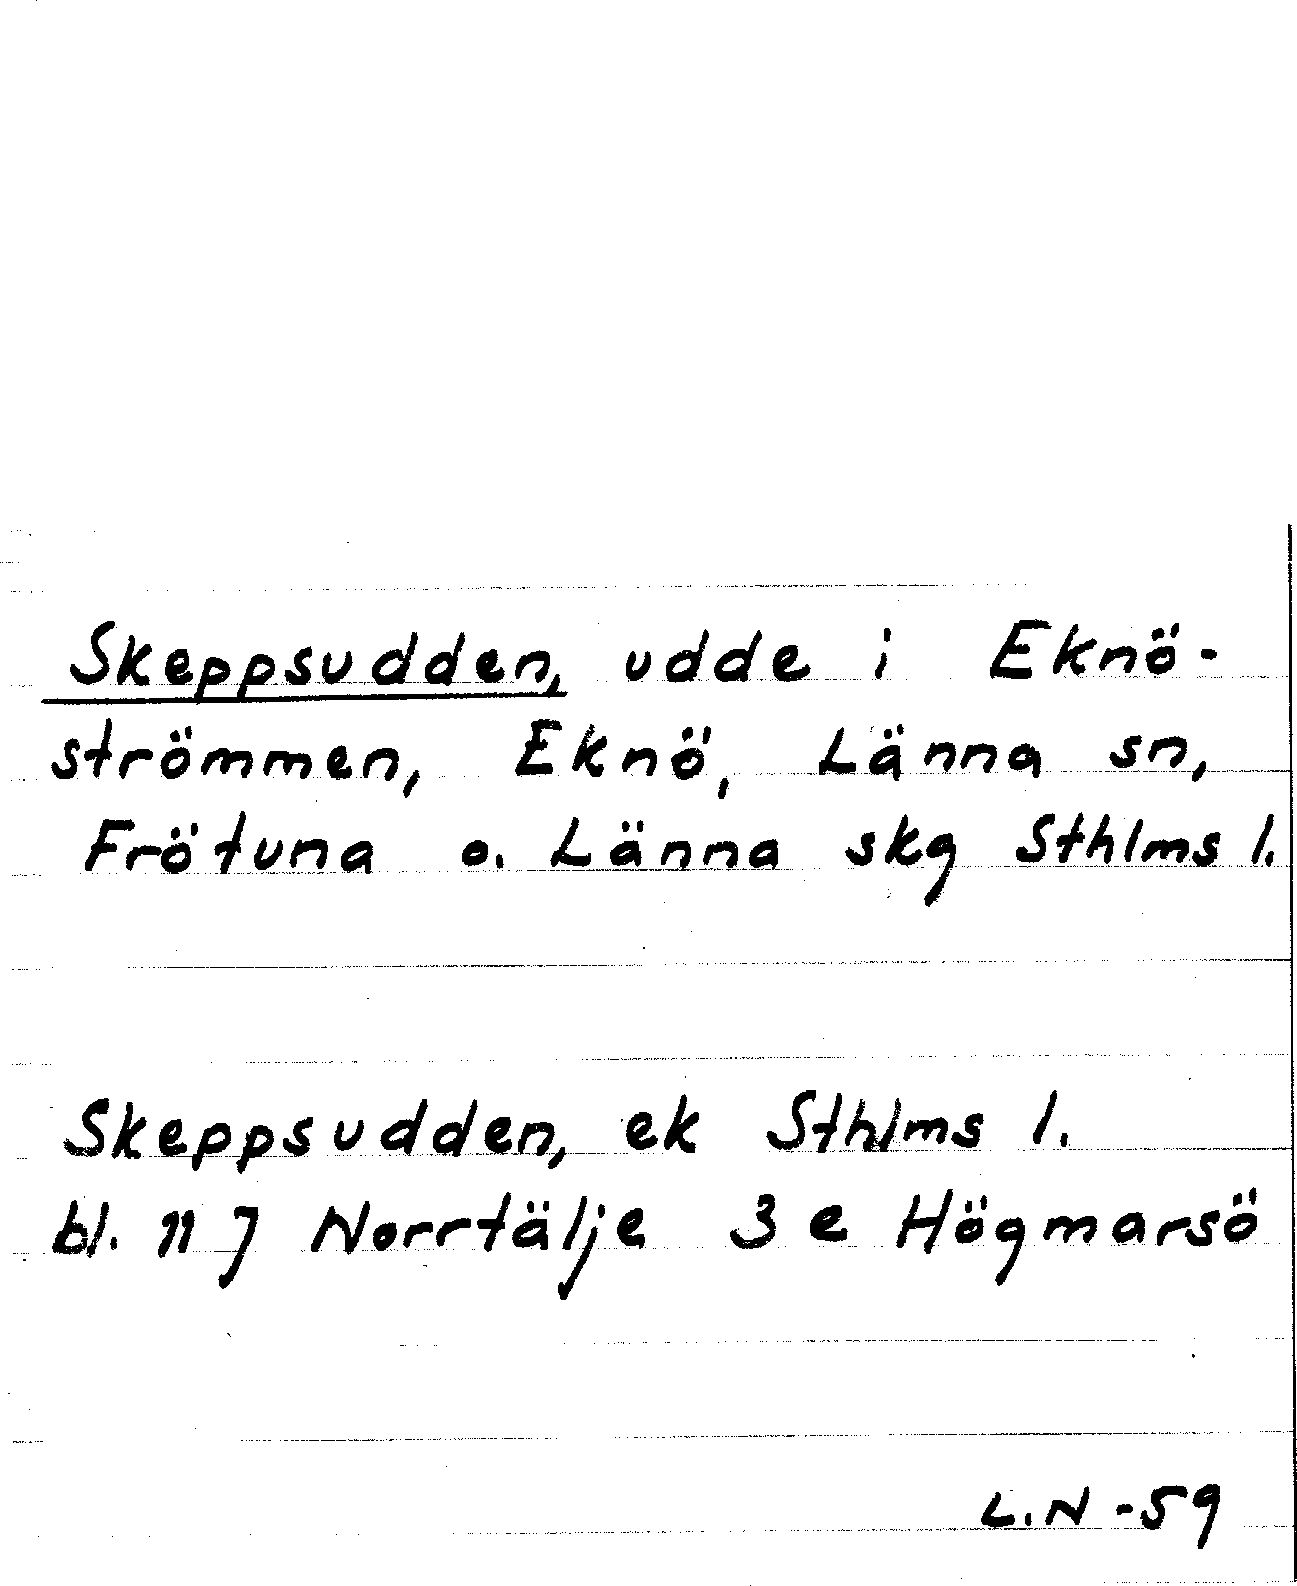 Skeppsudden, udde i Eknö-
strömmen, Eknö, Länna sn,
Frötuna o. Länna skg Sthlms l.
Skeppsudden, ek Sthlms l.
bl. 11 J Norrtälje 3 e Högmarsö
L.N -59